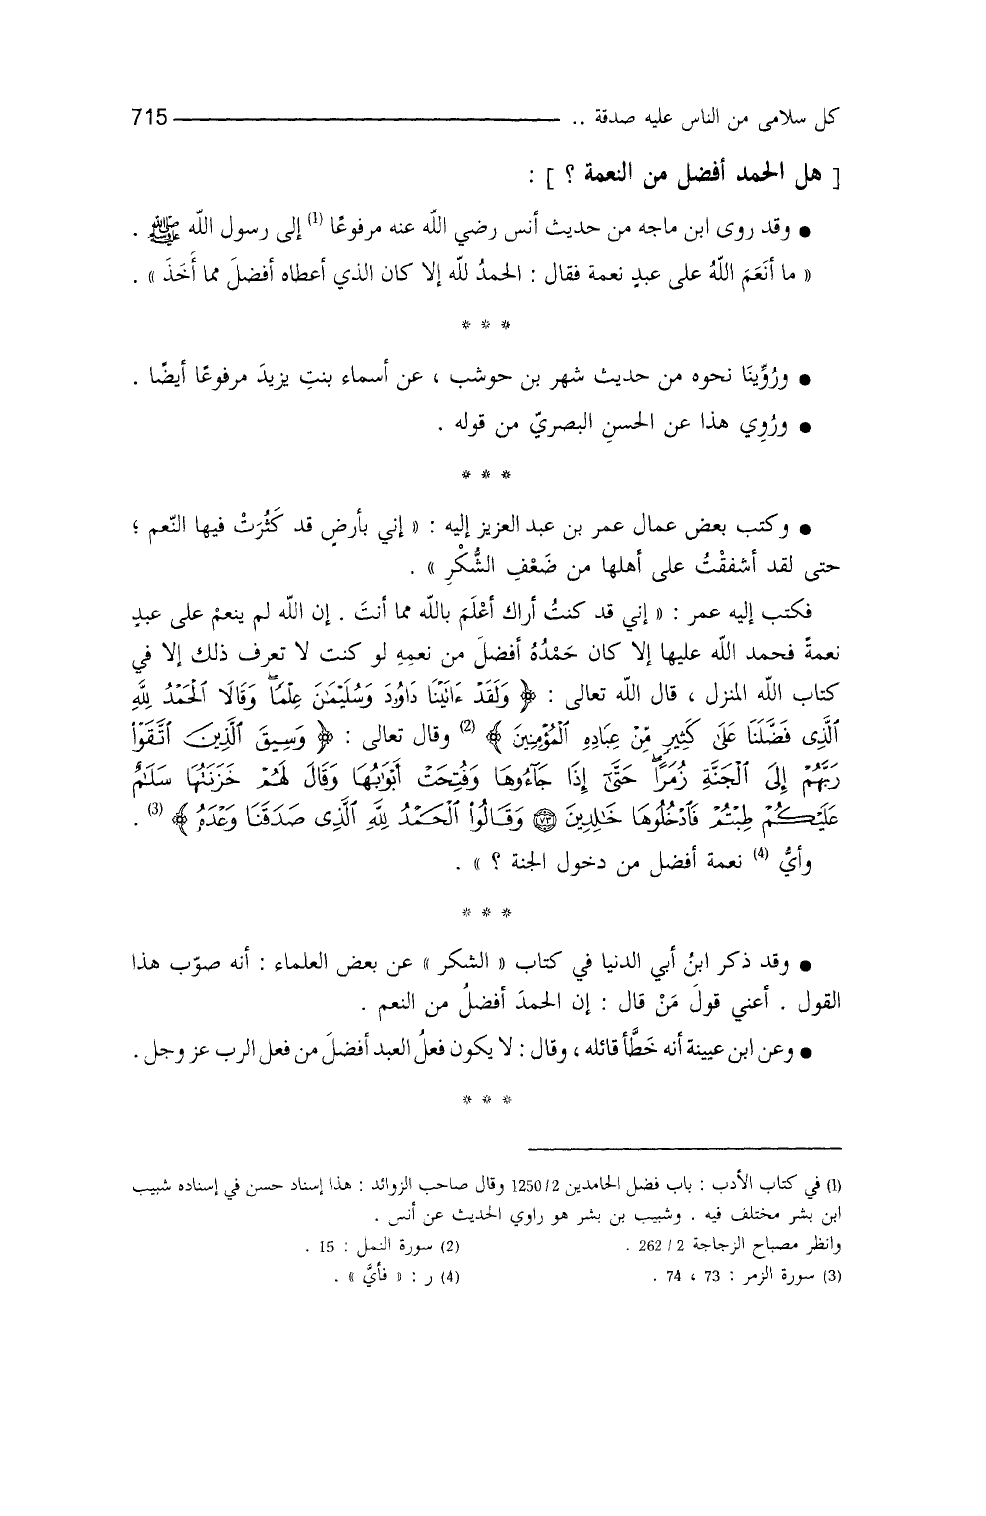 كل سلامى من الناس عليه صدقة .. 715
[ هل الحمد أفضل من النعمة ؟ ] :
● وقد روى ابن ماجه من حديث أنس رضي اللّه عنه مرفوعًا (1) إلى رسول اللّه ﷺ .
« ما أنَعَمَ اللّهُ على عبدٍ نعمة فقال : الحمدُ للّه إلا كان الذي أعطاه أفضلَ مما أَخَذَ » .
* * *
● ورُوِّينَا نحوه من حديث شهر بن حوشب ، عن أسماء بنتِ يزيدَ مرفوعًا أيضًا .
● ورُوِي هذا عن الحسنِ البصريّ من قوله .
* * *
● وكتب بعض عمال عمر بن عبد العزيز إليه : « إني بأرضٍ قد كَثُرَتْ فيها النّعم ؛
حتى لقد أشفقْتُ على أهلها من ضَعْفِ الشُّكْرِ » .
فكتب إليه عمر : « إني قد كنتُ أراك أعْلَمَ باللّه مما أنتَ . إن اللّه لم ينعمْ على عبدٍ
نعمةً فحمد اللّه عليها إلا كان حَمْدُهُ أفضلَ من نعمِهِ لو كنت لا تعرف ذلك إلا في
كتاب اللّه المنزل ، قال اللّه تعالى : ﴿ وَلَقَدْ ءَاتَيْنَا دَاوُۥدَ وَسُلَيْمَٰنَ عِلْمًاۖ وَقَالَا ٱلْحَمْدُ لِلَّهِ
ٱلَّذِى فَضَّلَنَا عَلَىٰ كَثِيرٍ مِّنْ عِبَادِهِ ٱلْمُؤْمِنِينَ ﴾ (2) وقال تعالى : ﴿ وَسِيقَ ٱلَّذِينَ ٱتَّقَوْا۟
رَبَّهُمْ إِلَى ٱلْجَنَّةِ زُمَرًاۖ حَتَّىٰٓ إِذَا جَآءُوهَا وَفُتِحَتْ أَبْوَٰبُهَا وَقَالَ لَهُمْ خَزَنَتُهَا سَلَٰمٌ
عَلَيْكُمْ طِبْتُمْ فَٱدْخُلُوهَا خَٰلِدِينَ ٧٣ وَقَالُوا۟ ٱلْحَمْدُ لِلَّهِ ٱلَّذِى صَدَقَنَا وَعْدَهُۥ ﴾ (3) .
وأيُّ (4) نعمة أفضل من دخول الجنة ؟ » .
* * *
● وقد ذكر ابنُ أبي الدنيا في كتاب « الشكر » عن بعض العلماء : أنه صوّب هذا
القول . أعني قولَ مَنْ قال : إن الحمدَ أفضلُ من النعم .
● وعن ابن عيينة أنه خَطَّأ قائله ، وقال : لا يكون فعلُ العبد أفضلَ من فعل الرب عز وجل .
* * *
(1) في كتاب الأدب : باب فضل الحامدين 2/ 1250 وقال صاحب الزوائد : هذا إسناد حسن في إسناده شبيب
ابن بشر مختلف فيه . وشبيب بن بشر هو راوي الحديث عن أنس .
وانظر مصباح الزجاجة 2 / 262 . (2) سورة النمل : 15 .
(3) سورة الزمر : 73 ، 74 . (4) ر : « فأيَّ » .